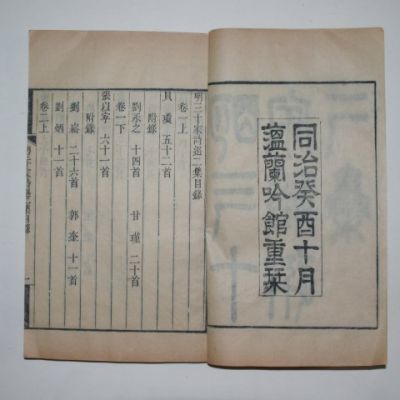 同治癸酉十月
蘊蘭吟館重栞
明三十家詩選二集目錄
卷一上
貝瓊 五十二首
附錄
劉永之 十四首 甘瑾 二十首
卷一下
張以寧 六十一首
附錄
劉崧 二十六首 郭奎 十一首
劉炳 十一首
卷二上